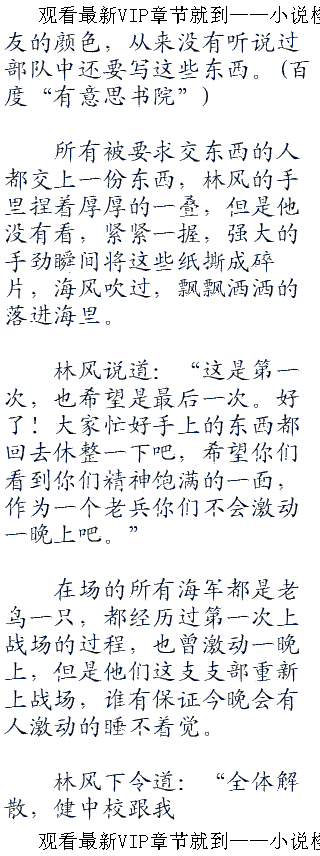 观看最新VIP章节就到——小说档
友的颜色，从来没有听说过
部队中还要写这些东西。(百
度“有意思书院”)
所有被要求交东西的人
都交上一份东西，林风的手
里捏着厚厚的一叠，但是他
没有看，紧紧一握，强大的
手劲瞬间将这些纸撕成碎
片，海风吹过，飘飘洒洒的
落进海里。
林风说道：“这是第一
次，也希望是最后一次。好
了！大家忙好手上的东西都
回去休整一下吧，希望你们
看到你们精神饱满的一面，
作为一个老兵你们不会激动
一晚上吧。”
在场的所有海军都是老
鸟一只，都经历过第一次上
战场的过程，也曾激动一晚
上，但是他们这支支部重新
上战场，谁有保证今晚会有
人激动的睡不着觉。
林风下令道：“全体解
散，健中校跟我
观看最新VIP章节就到——小说档